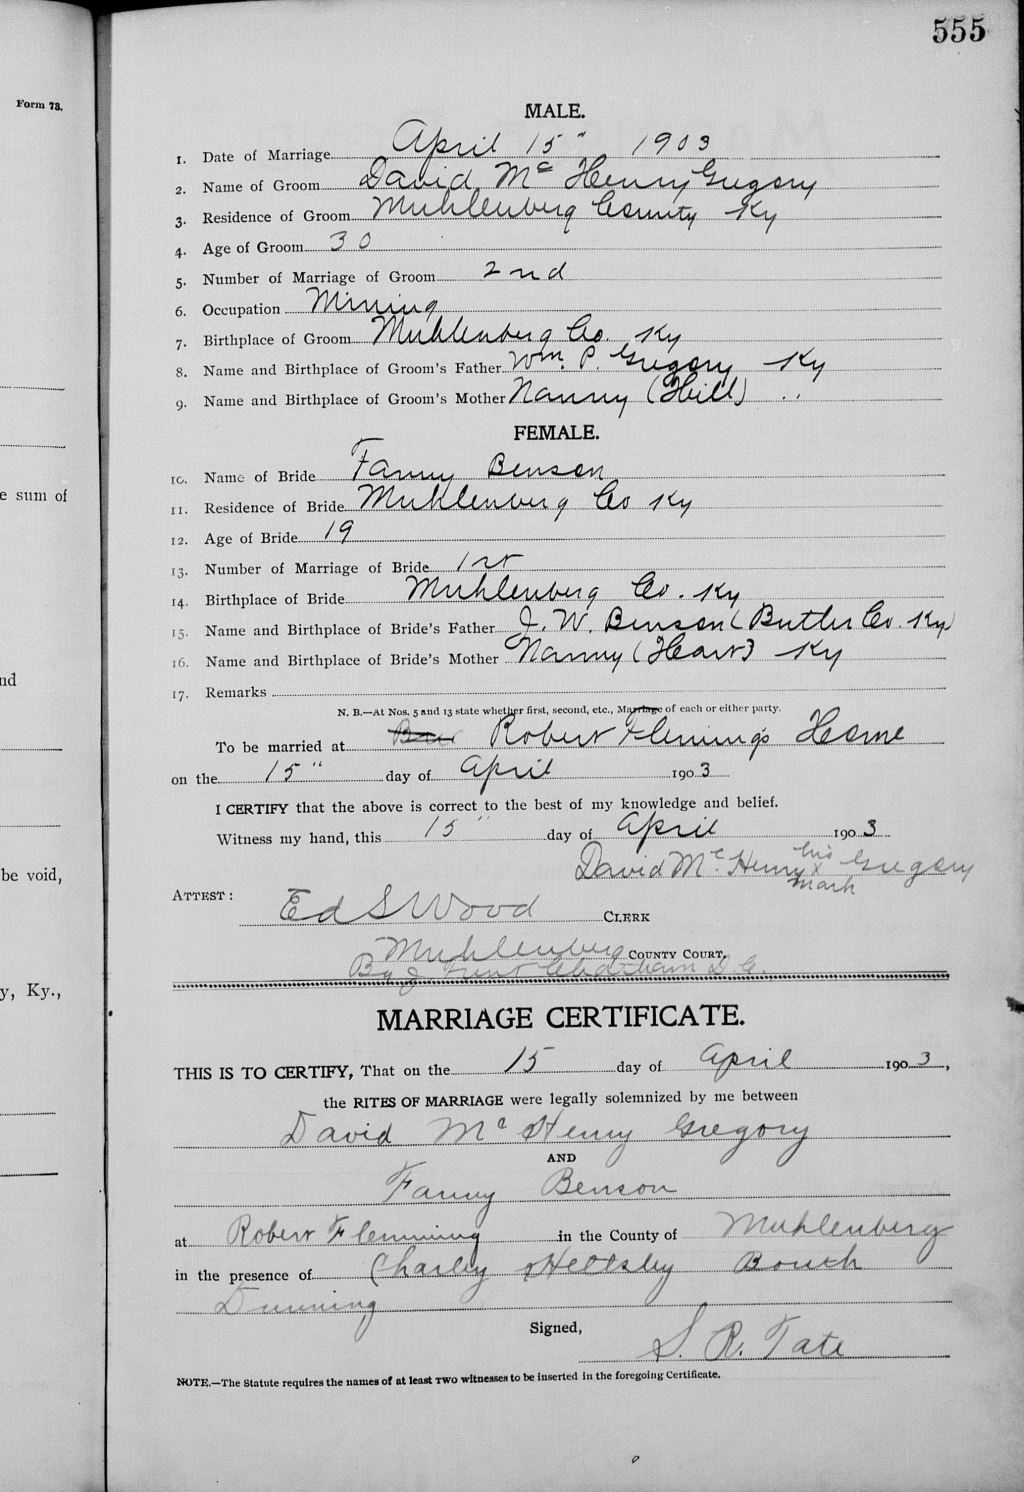 555
Form 73.
MALE.
1. Date of Marriage April 15" 1903
2. Name of Groom David Mc Henry Gregory
3. Residence of Groom Muhlenberg County Ky
4. Age of Groom 30
5. Number of Marriage of Groom 2nd
6. Occupation Mining
7. Birthplace of Groom Muhlenberg Co. Ky
8. Name and Birthplace of Groom's Father Wm. P. Gregory Ky
9. Name and Birthplace of Groom's Mother Nanny (Hill) ..
FEMALE.
10. Name of Bride Fanny Benson
11. Residence of Bride Muhlenberg Co Ky
12. Age of Bride 19
13. Number of Marriage of Bride 1st
14. Birthplace of Bride Muhlenberg Co. Ky
15. Name and Birthplace of Bride's Father J. W. Benson (Butler Co. Ky)
16. Name and Birthplace of Bride's Mother Nanny (Heart) Ky
17. Remarks
N. B.—At Nos. 5 and 13 state whether first, second, etc., Marriage of each or either party.
To be married at Robert Flemings Home
on the 15" day of April 1903
I CERTIFY that the above is correct to the best of my knowledge and belief.
Witness my hand, this 15" day of April 1903
David Mc. Henry his x mark Gregory
ATTEST:
Ed S Wood CLERK
Muhlenberg COUNTY COURT.
By J D. C.
MARRIAGE CERTIFICATE.
THIS IS TO CERTIFY, That on the 15 day of April 1903,
the RITES OF MARRIAGE were legally solemnized by me between
David Mc Henry Gregory
AND
Fanny Benson
at Robert Flemming in the County of Muhlenberg
in the presence of Charley Heltsley
Dunning
Signed,
S. R. Tate
NOTE.—The Statute requires the names of at least TWO witnesses to be inserted in the foregoing Certificate.
e sum of
nd
be void,
y, Ky.,